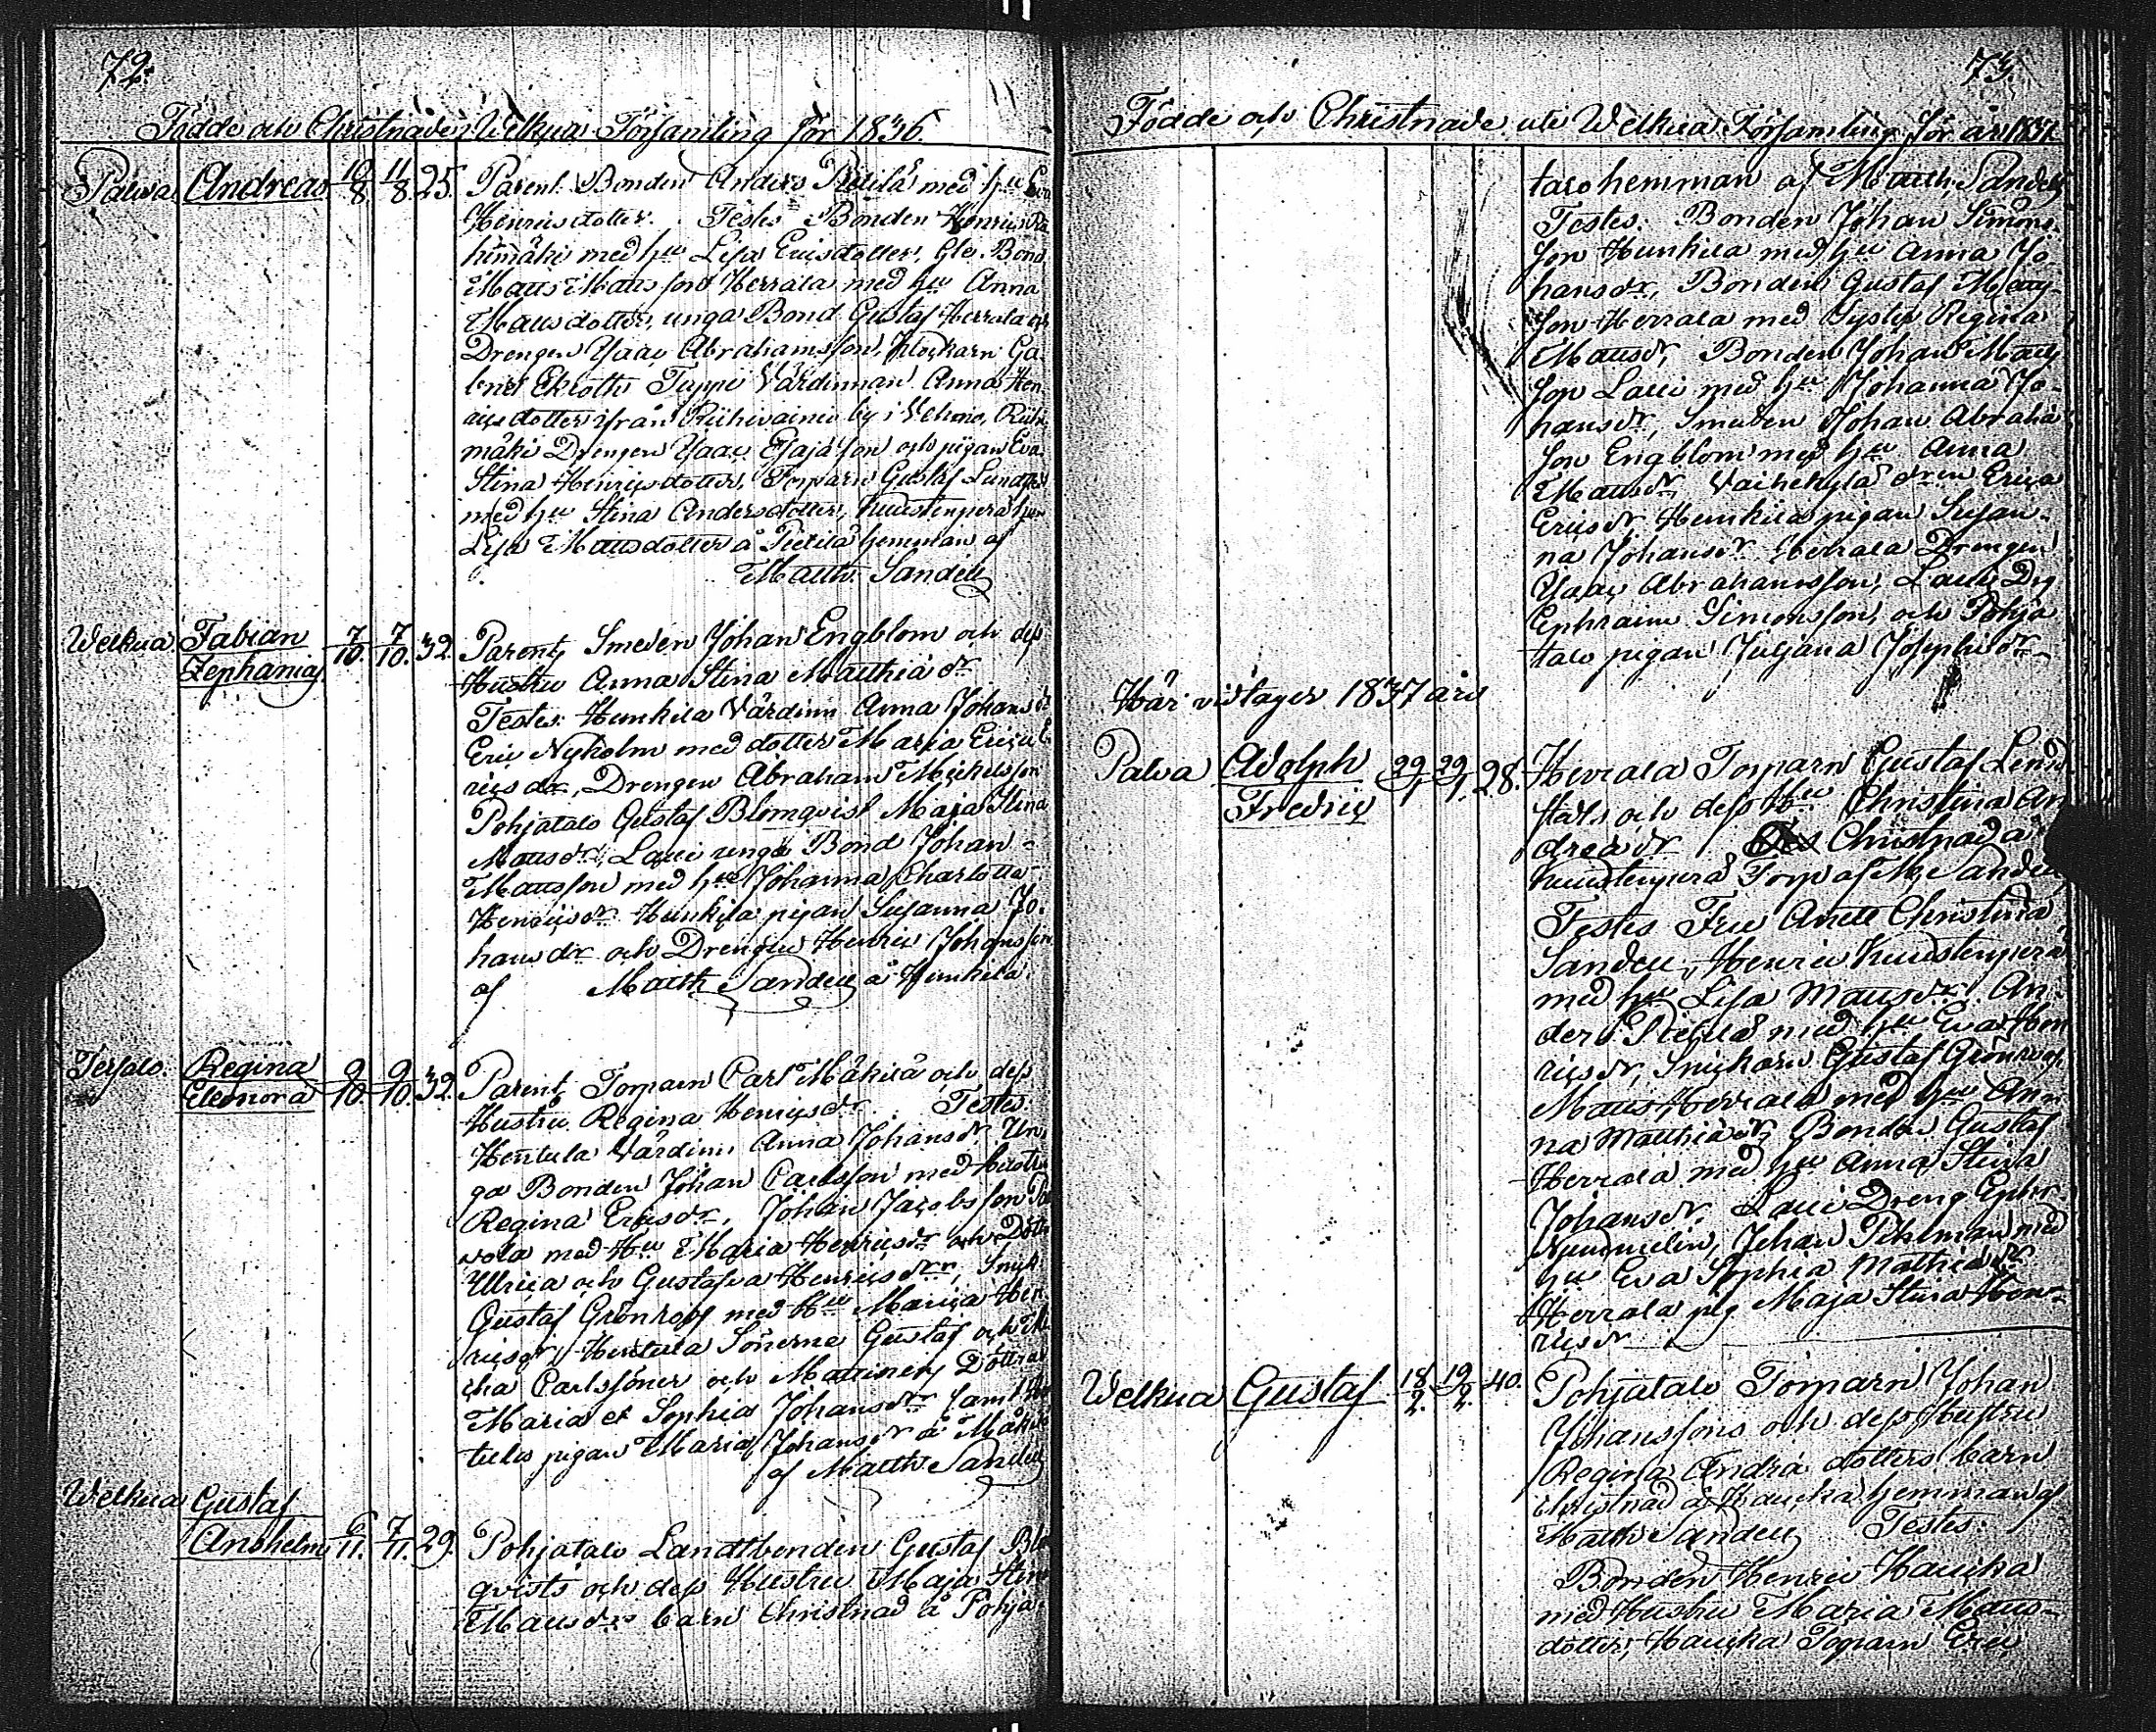 72.
Födde och Christnade i Welkua Församling för 1836.
Palva Andreas 10/8 11/8 25. Parent. Bonden Anders Pietilä med hu Eva
Henricsdotter. Testes Bonden Henric
himäki med hu Lisa Ericsdotter, Gle. Bond
Matts Matsson Herrala med hu Anna
Mattsdotter, unga Bond. Gustaf Herrala och
Drengen Isaac Abrahamsson, Klockarn Ga
briel Ekroths Tuppi Värdinnan Anna Hen
ricsdotter ifrån Riihivainio by i Vehmo, Riihi
mäki Drengen Isaac Esajason och pigan Eva
Stina Henricsdotter, Torparn Gustaf
med hu Stina Andersdotter, Kuustenperä hu
Lisa Mattsdotter å Pietilä hemman af
Matth. Sandell
Welkua Fabian 7/10. 7/10. 32. Parent. Smeden Johan Engblom och dess
Zephanias Hustru Anna Stina Matthiädr
Testes: Hunkila Värdinn Anna Johansdr
Eric Nyholm med dotter Maria Erica E
ricsdr, Drengen Abraham Michelsson
Pohjatalo Gustaf Blomqvist Maja Stina
Mattsdr, Lauri unga Bond Johan
Mattsson med hu Johanna Charlotta
Henricsdr Hunkila pigan Susanna Jo-
hansdr och Drengen Henric Johansson
af Matth Sandell å Hunkila.
Tersalo. Regina 9/10. 9/10. 32. Parent. Torparn Carl Mäkilä och dess
Eleonora Hustru Regina Henricsdr. Testes.
Hentula Värdinn Anna Johansdr Un-
ga Bonden Johan Carlsson med Hustru
Regina Ericsdr, Johan Jacobsson
vola med Hu Maria Henricsdr och Döttr
Ulrica och Gustafva Henricsdrr, Snick.
Gustaf Grönroos med Hu Marica Hen
ricsdr, Hentula Sönerne Gustaf och
cha Carlsöner och Döttrar
Maria et Sophia Johansdr samt Hen
tula pigan Maria Johansdr å Mäkilä
af Matth Sandell
Welkua Gustaf
Anshelm 6/11. 7/11. 29. Pohjatalo Landtbonden Gustaf Blo
qvists och dess Hustru Maja Stina
Mattsdrs barn Christnad å Pohja
73.
Födde och Christnade uti Welkua Församling för år 1837.
talo hemman af Matth. Sandell
Testes: Bonden Johan Simons-
son Hunkila med hu Anna Jo
hansdr, Bonden Gustaf Matts-
son Herrala med Syster Regina
Mattsdr, Bonden Johan Matts
son Lauri med hu Johanna Jo-
hansdr, Smeden Johan Abraha
son Engblom med hu Anna
Mattsdr, Vaihekylä drn Erica
Ericsdr Hunkila pigan Susan-
na Johansdr Herrala Drengen
Isaac Abrahamsson, Lauri Drg
Ephraim Simonsson, och Pohja
talo pigan Juliana Josephsdr
Här vidtager 1837 års
Palva Adolph 29/1 29/1. 28. Herrala Torparn Gustaf Lind
Fredric stedts och dess Hu Christina An
dreädr Christnad å
Kuustenperä Torp af M. Sandell
Testes Fru Anette Christina
Sandell, Henric Kuustenperä
med hu Lisa Mattsdr. An-
ders Pietilä med hu Eva Hen
ricsdr, Snickarn Gustaf Grönroos
Matts Herrala med hu An-
na Matthiädr, Bonden Gustaf
Herrala med hu Anna Stina
Johansdr. Lauri Dreng Ephr.
Nummelin, Johan Pihlman med
hu Eva Sophia Mathiedr
Herrala pig Maja Stina Hen-
ricsdr
Welkua Gustaf 18/2. 19/2. 40. Pohjatalo Torparn Johan
Johanssons och dess Hustru
Regina Andrä dotters barn
christnad å Haucka hemman af
Matth Sandell Testes:
Bonden Henric Haucka
med Hustru Maria Matts-
dotter, Haucka Torparn Eric